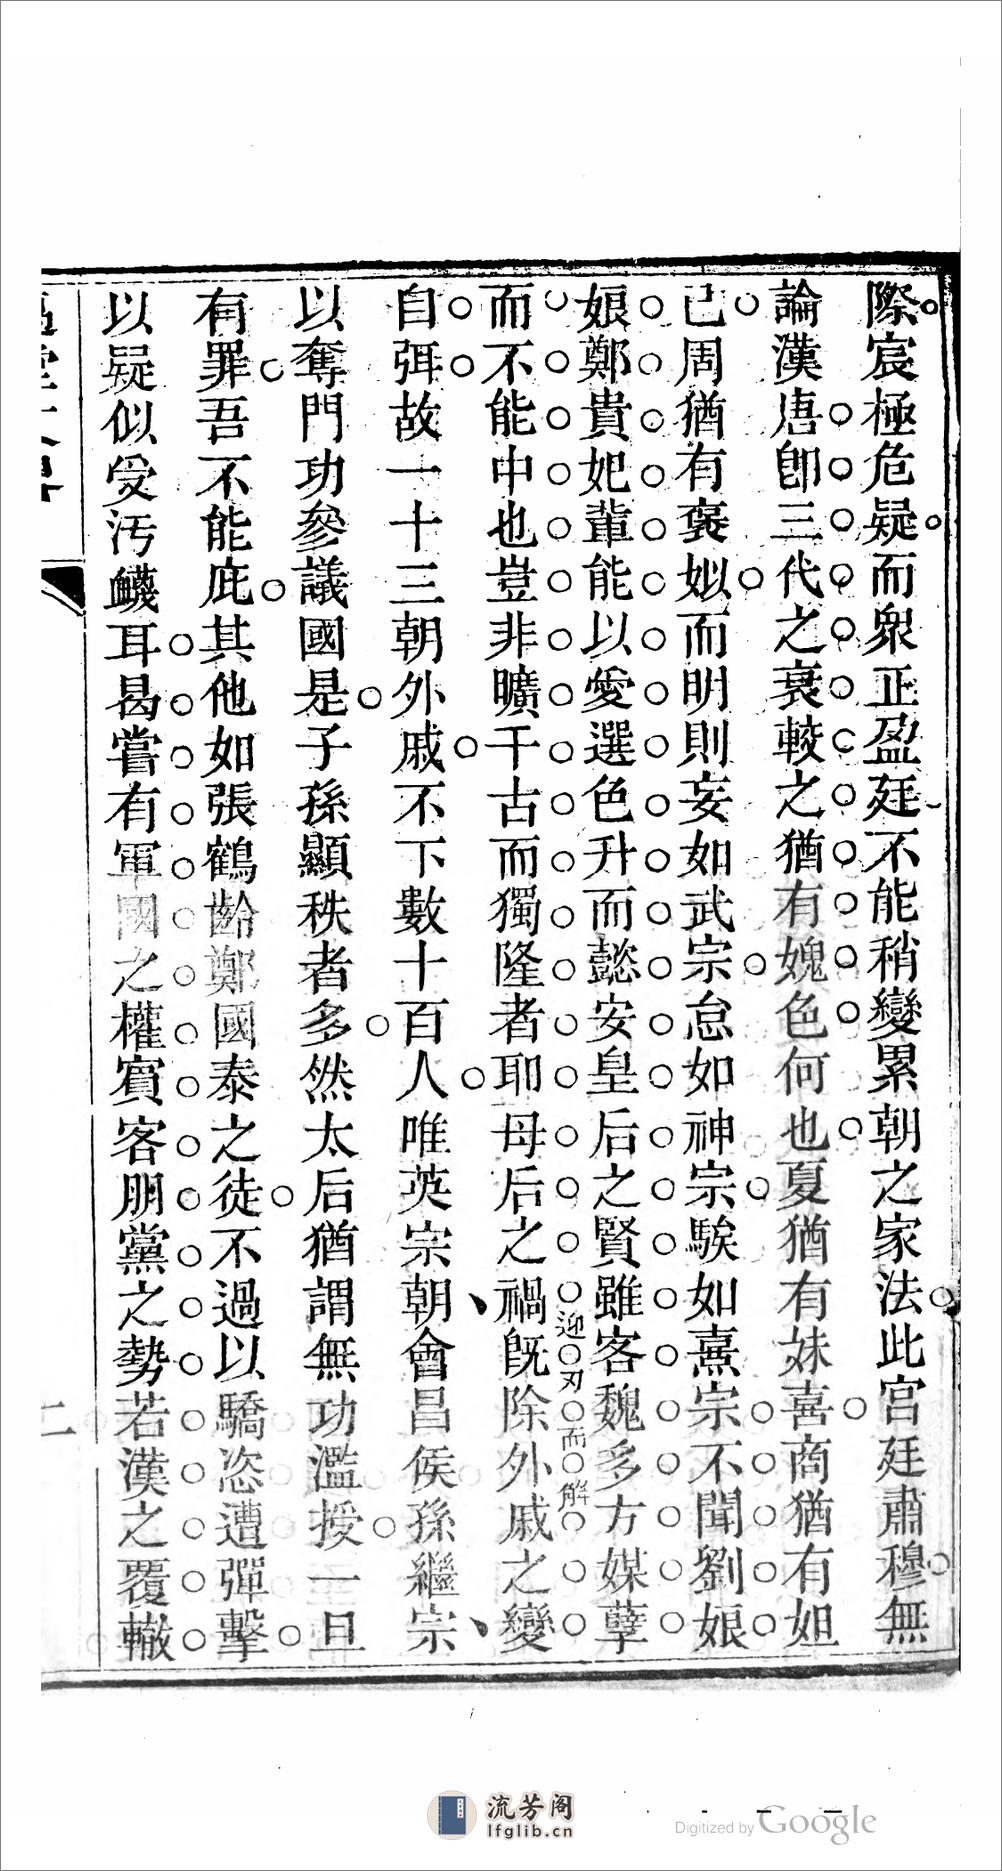 際宸極危疑而衆正盈廷不能稍變累朝之家法此宮廷肅穆無
論漢唐卽三代之衰較之猶有媿色何也夏猶有妹喜商猶有妲
已周猶有褒姒而明則妄如武宗怠如神宗騃如熹宗不聞劉娘
娘鄭貴妃輩能以愛選色升而懿安皇后之賢雖客魏多方媒孽
而不能中也豈非曠千古而獨隆者耶母后之禍旣除外戚之變
迎刃而解
自弭故一十三朝外戚不下數十百人唯英宗朝會昌侯孫繼宗
以奪門功參議國是子孫顯秩者多然太后猶謂無功濫授一旦
有罪吾不能庇其他如張鶴齡鄭國泰之徒不過以驕恣遭彈擊
以疑似受汚衊耳曷嘗有軍國之權賓客朋黨之勢若漢之覆轍
二
流芳阁
lfglib.cn
Digitized by Google